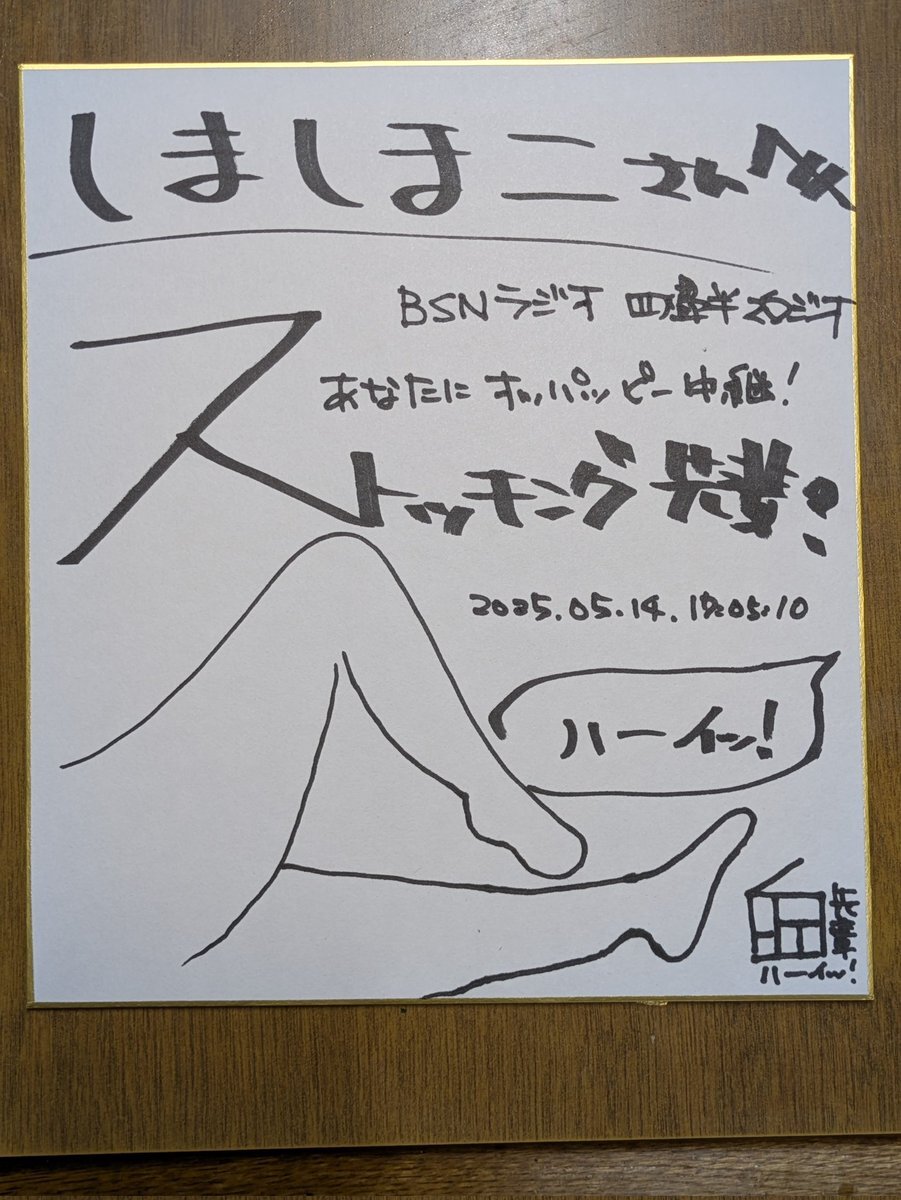 しましまニさんへ
BSNラジオ 四畳半ラジオ
あなたにオッパッピー中継!
ストッキング先輩!
2025.05.14.17:05:10
ハーイッ!
ハーイッ!